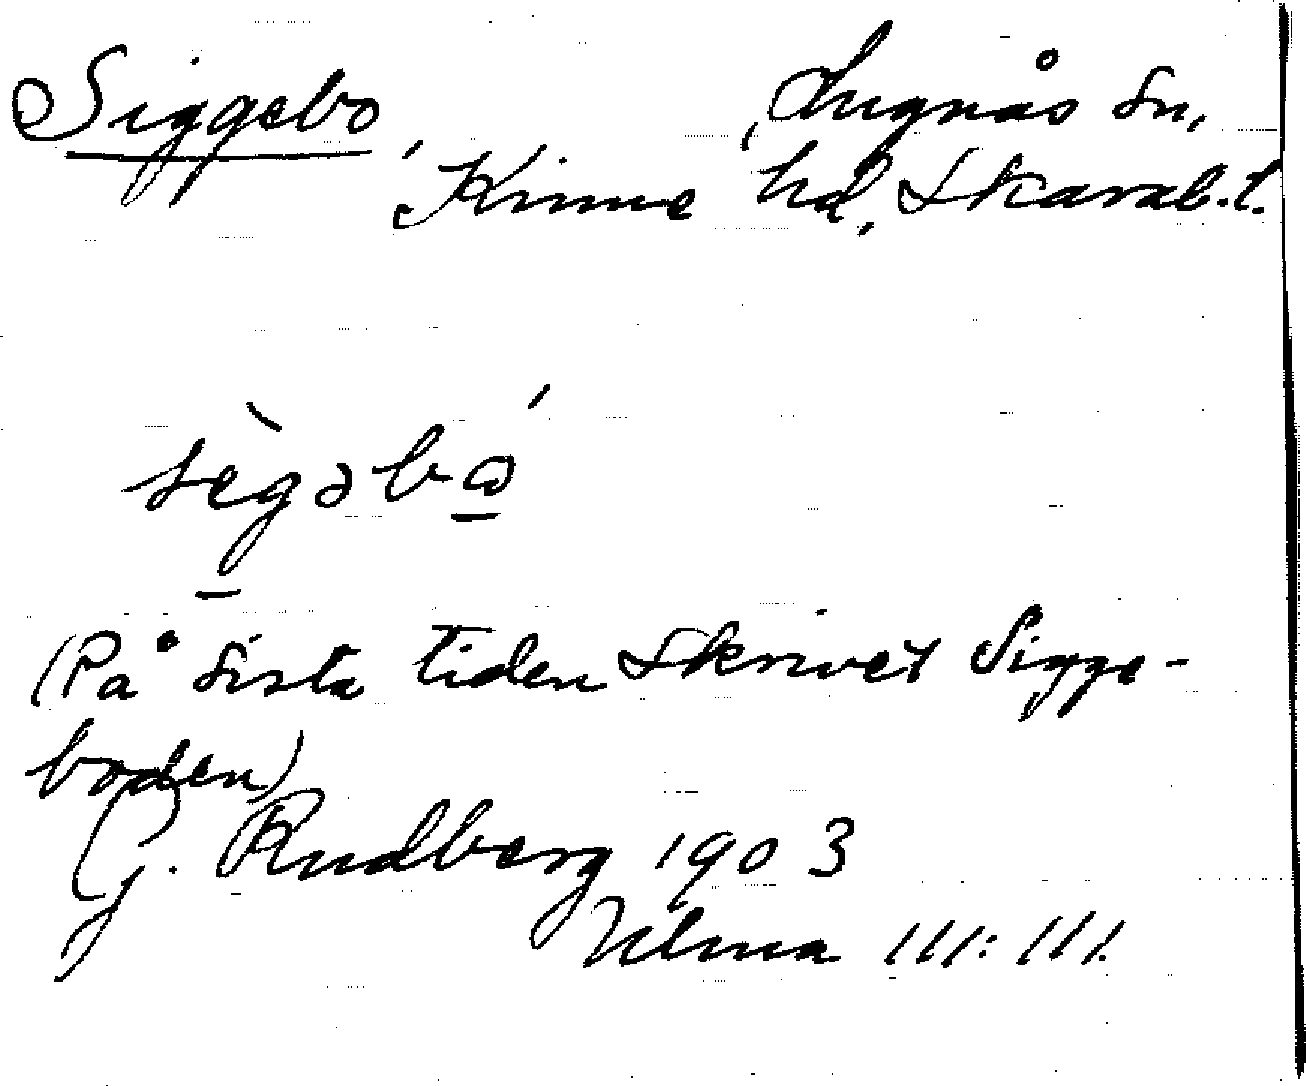 Siggebo, Lugnås sn,
Kinne hd, Skarab. l.
sègəbɷ́
(På sista tiden skrivet Sigge-
boden)
G. Rudberg 1903
Ulma 111:111.